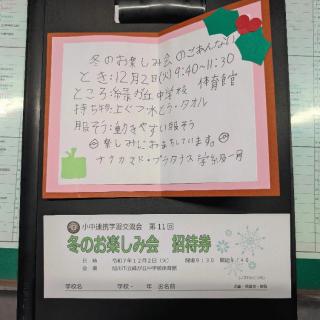 冬のお楽しみ会のごあんない
とき:12月2日(火)9:40~11:30
ところ:緑が丘中学校 体育館
持ち物:上ぐつ・水とう・タオル
服そう:動きやすい服そう
楽しみにおまちしています。
ナナカマド・プラタナス学級一同
小中連携学習交流会 第11回
冬のお楽しみ会 招待券
日時 令和7年12月2日(火) 開場9:30 開始9:40
会場 旭川市立緑が丘中学校体育館
学校名 学校・ 年 氏名